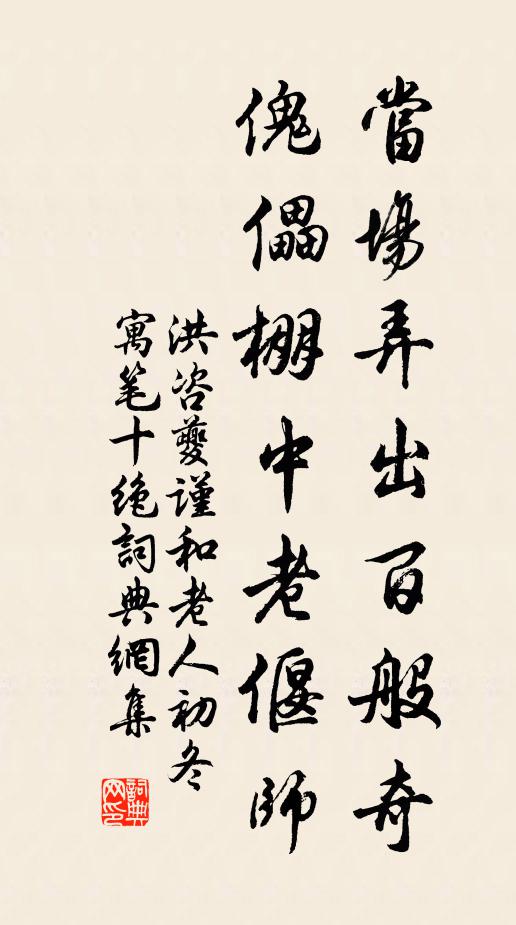 當場弄出百般奇
傀儡棚中老偃師
洪咨夔謹和老人初冬
寓笔十绝詞典網集
詞典
网印